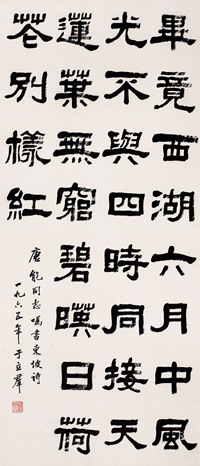 畢竟西湖六月中風
光不與四時同接天
蓮葉無窮碧暎日荷
花別樣紅
唐能同志嘱書東坡詩
一九六五年于立羣